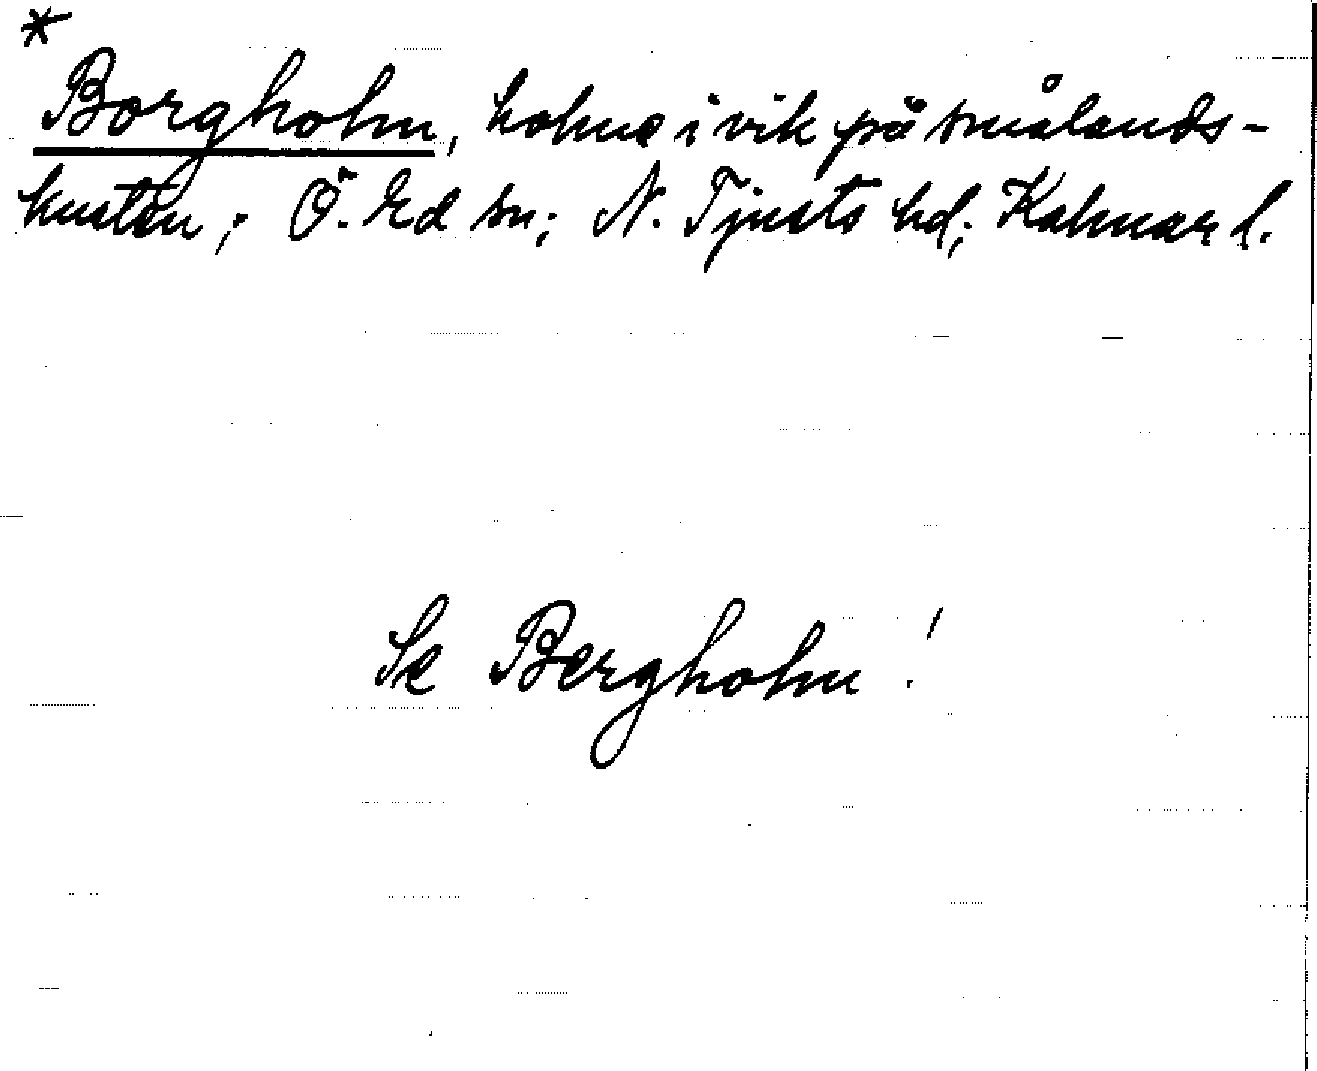 *
Borgholm, holme i vik på smålands-
kusten; Ö. Ed sn; N. Tjusts hd; Kalmar l.
Se Bergholm!